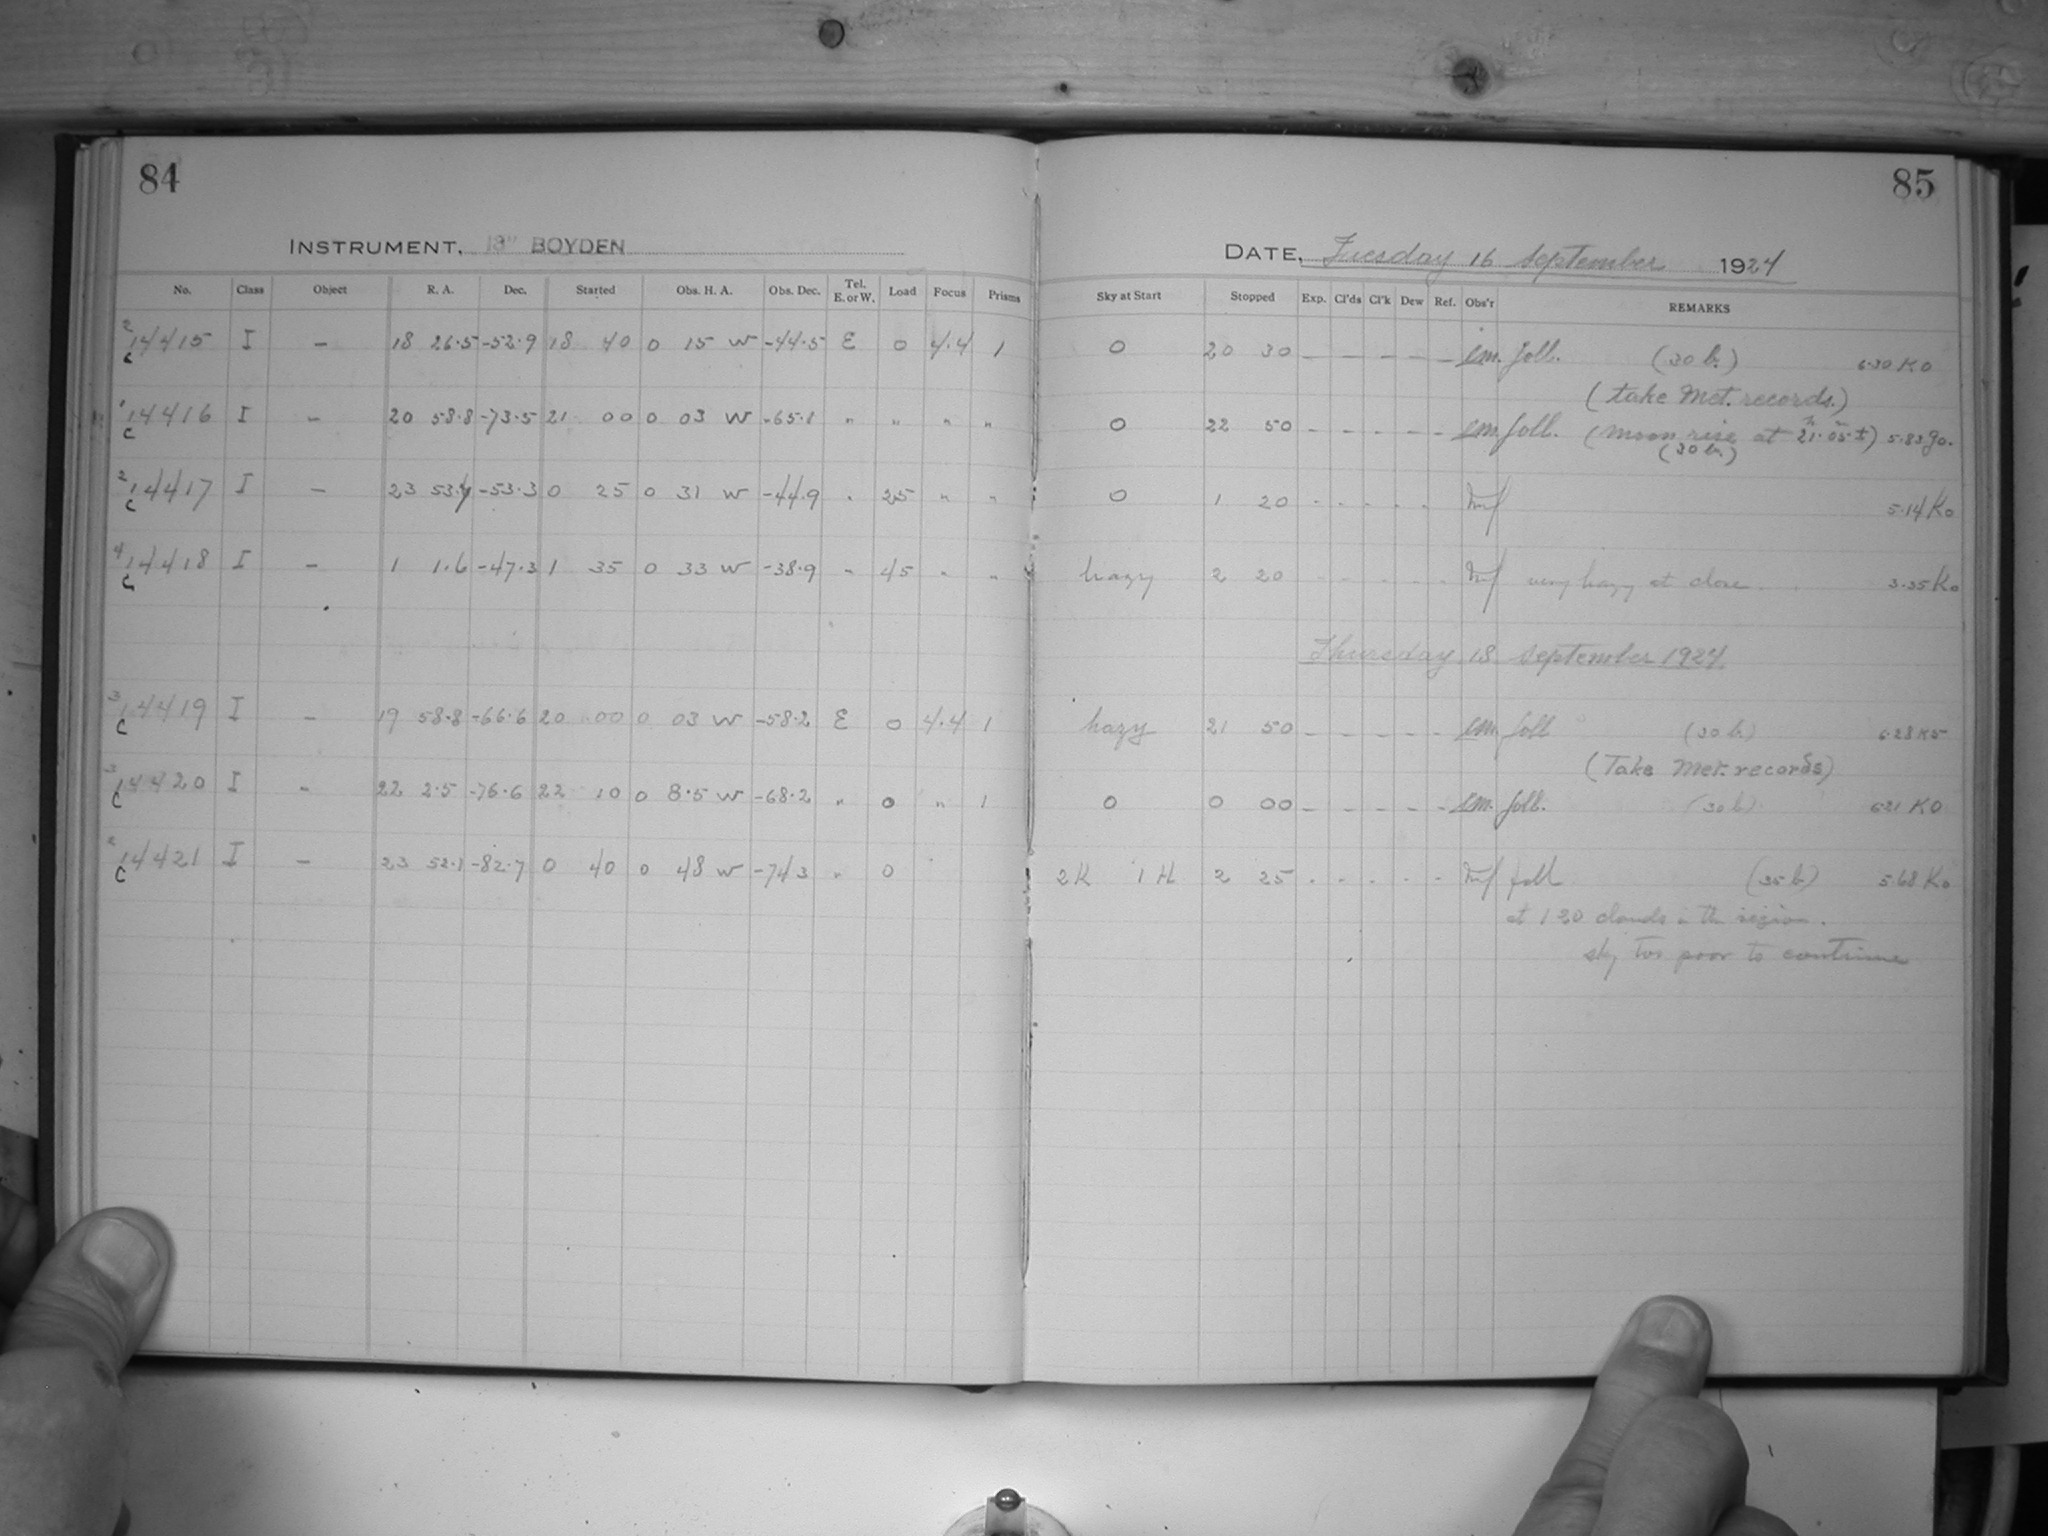 84
INSTRUMENT, 13" BOYDEN
No. Class Object R. A. Dec. Started Obs. H. A. Obs. Dec. Tel. E. or W. Load Focus Prisms
2 C 14415 I - 18 26.5 -52.9 18 40 0 15 W -44.5 E 0 4.4 1
1 C 14416 I - 20 58.8 -73.5 21 00 0 03 W -65.1 " " " "
2 C 14417 I - 23 53.4 -53.3 0 25 0 31 W -44.9 " 25 " "
4 C 14418 I - 1 1.6 -47.3 1 35 0 33 W -38.9 " 45 " "
3 C 14419 I - 19 58.8 -66.6 20 00 0 03 W -58.2 E 0 4.4 1
3 C 14420 I - 22 2.5 -76.6 22 10 0 8.5 W -68.2 " 0 " 1
2 C 14421 I - 23 52.1 -82.7 0 40 0 48 W -74.3 " 0
85
DATE, Tuesday 16 September 1924
Sky at Start Stopped Exp. Cl'ds Cl'k Dew Ref. Obs'r REMARKS
0 20 30 - - - - - em. foll. (30 b.) 6.30 K0
(take Met. records.)
0 22 50 - - - - - em. foll. (moon rise at 21h.05m ±) 5.83 G0.
(30 b.)
0 1 20 - - - - - 5.14 K0
hazy 2 20 - - - - - very hazy at close 3.35 K0
Thursday 18 September 1924.
hazy 21 50 - - - - - em. foll (30 b.) 6.28 K5
(Take Met. records)
0 0 00 - - - - - em. foll. (30 b) 6.21 K0
2K 1H 2 25 - - - - - foll (35 b) 5.68 K0
at 1 20 clouds in the region.
sky too poor to continue